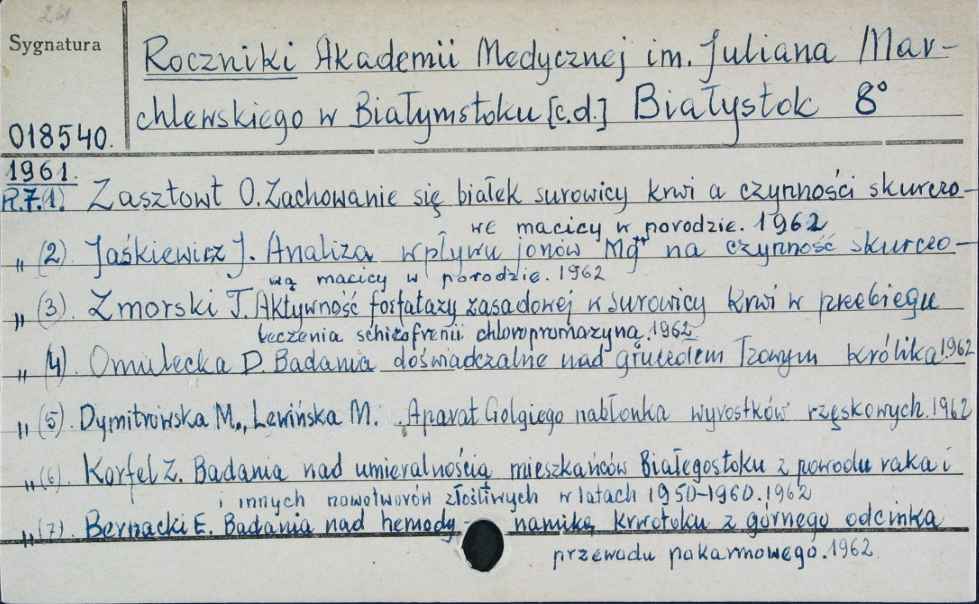 24
Sygnatura
Roczniki Akademii Medycznej im. Juliana Mar-
chlewskiego w Białymstoku [c.d.] Białystok 8°
018540.
1961.
R.7.(1). Zasztowt O. Zachowanie się białek surowicy krwi a czynności skurczo-
we macicy w porodzie. 1962
„ (2). Jaśkiewicz J. Analiza wpływu jonów Mg⁺⁺ na czynność skurczo-
wą macicy w porodzie. 1962
„ (3). Zmorski T. Aktywność fosfatazy zasadowej w surowicy krwi w przebiegu
leczenia schizofrenii chloropromazyną. 1962
„ (4). Omulecka D. Badania doświadczalne nad gruczołem łzowym królika 1962
„ (5). Dymitrowska M., Lewińska M. Aparat Golgiego nabłonka wyrostków rzęskowych. 1962
„ (6). Korfel Z. Badania nad umieralnością mieszkańców Białegostoku z powodu raka i
i innych nowotworów złośliwych w latach 1950-1960. 1962
„ (7). Bernacki E. Badania nad hemody- namiką krwotoku z górnego odcinka
przewodu pokarmowego. 1962